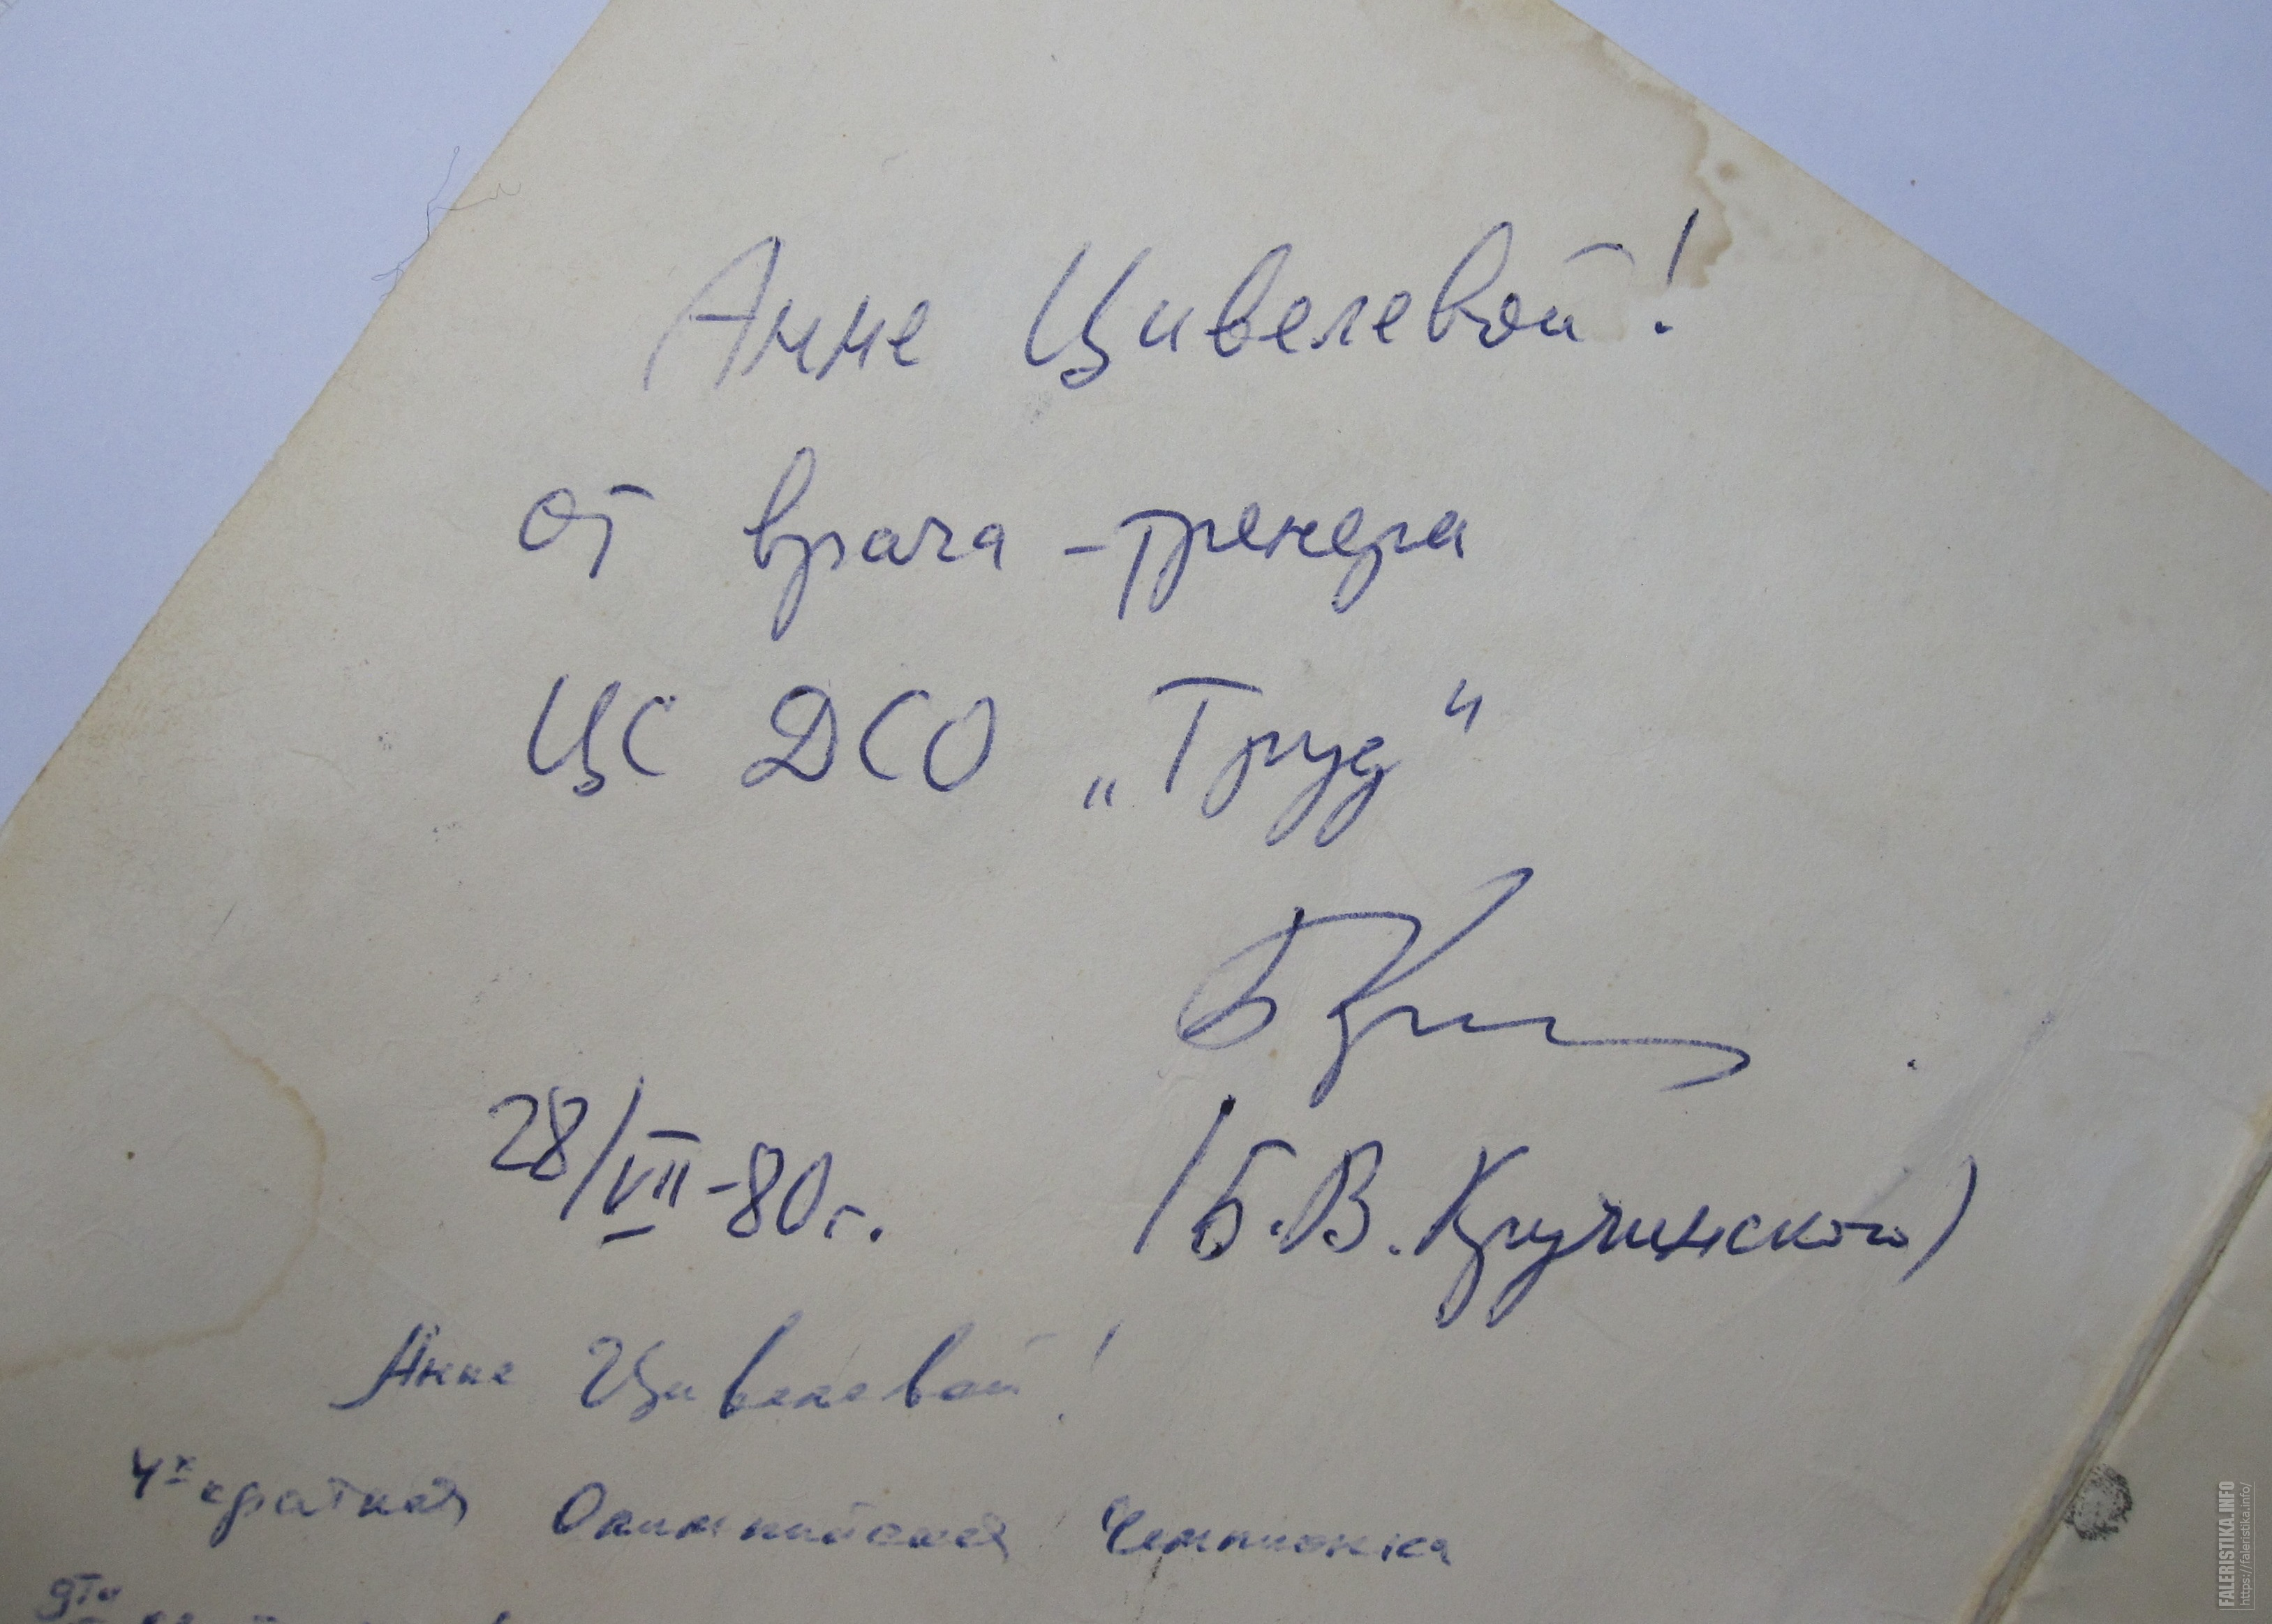 Анне Цивелевой!
от врача-тренера
ЦС ДСО „Труд"
28/VII-80г.
(Б.В. Кручинской)
Анне Цивелевой!
4х кратная Олимпийская Чемпионка
9ти
FALERISTIKA.INFO
https://faleristika.info/